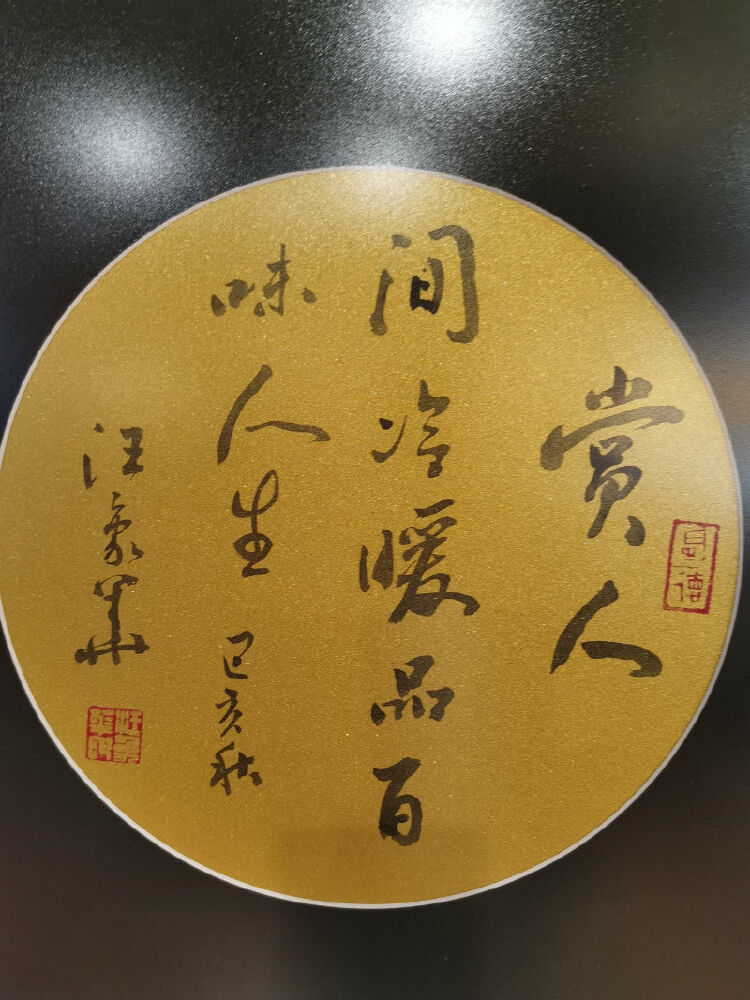 赏人
间冷暖品百
味人生 己亥秋
汪象华